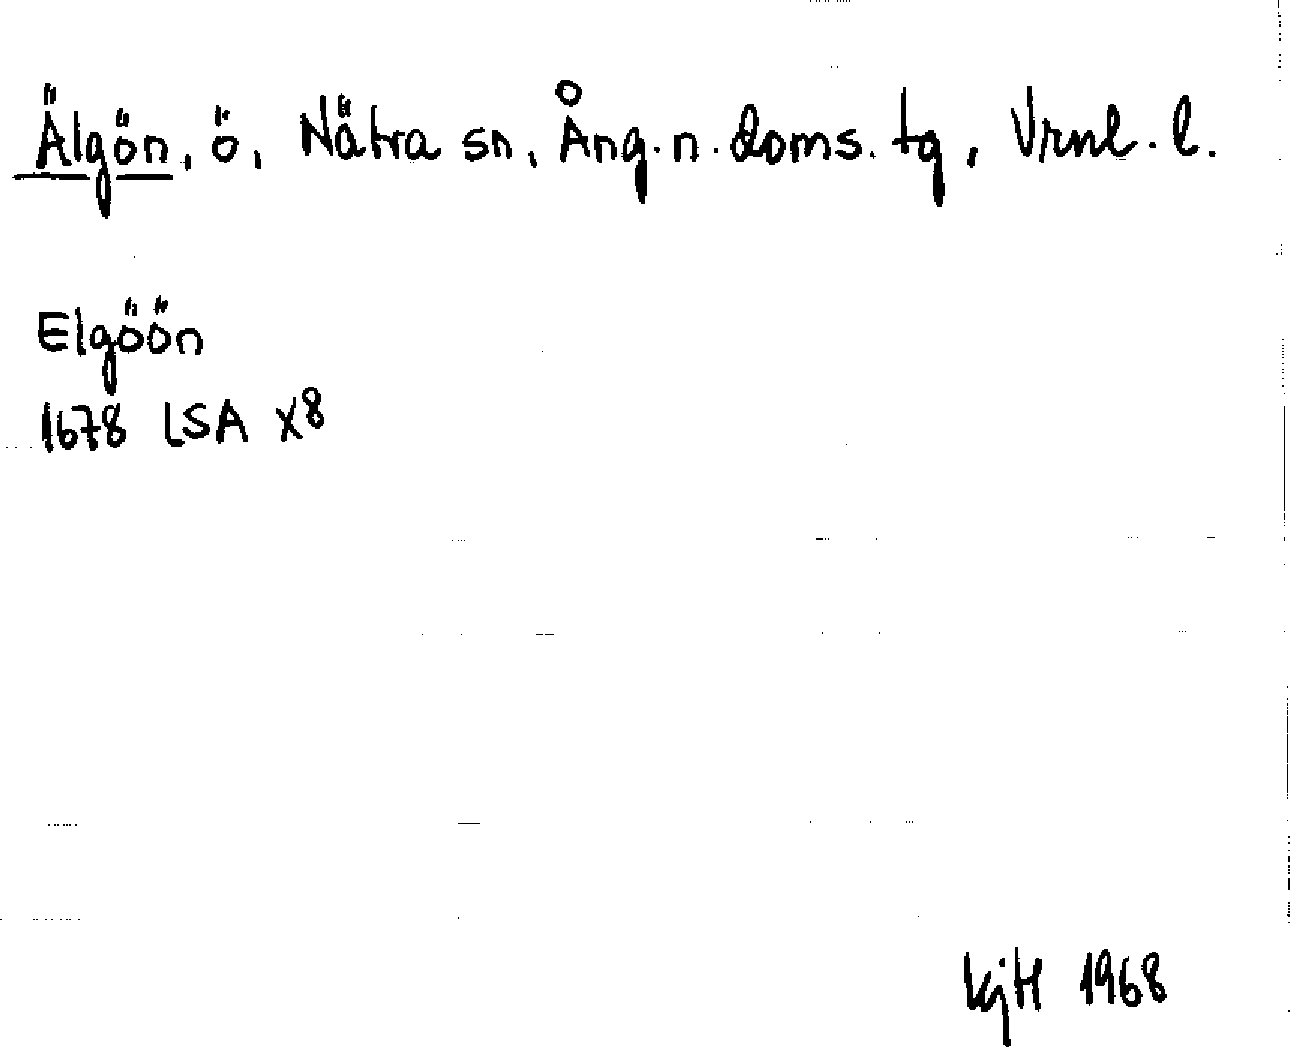 Älgön, ö, Nätra sn, Ång. n. doms. tg, Vrnl. l.
Elgöön
1678 LSA X8
KjH 1968